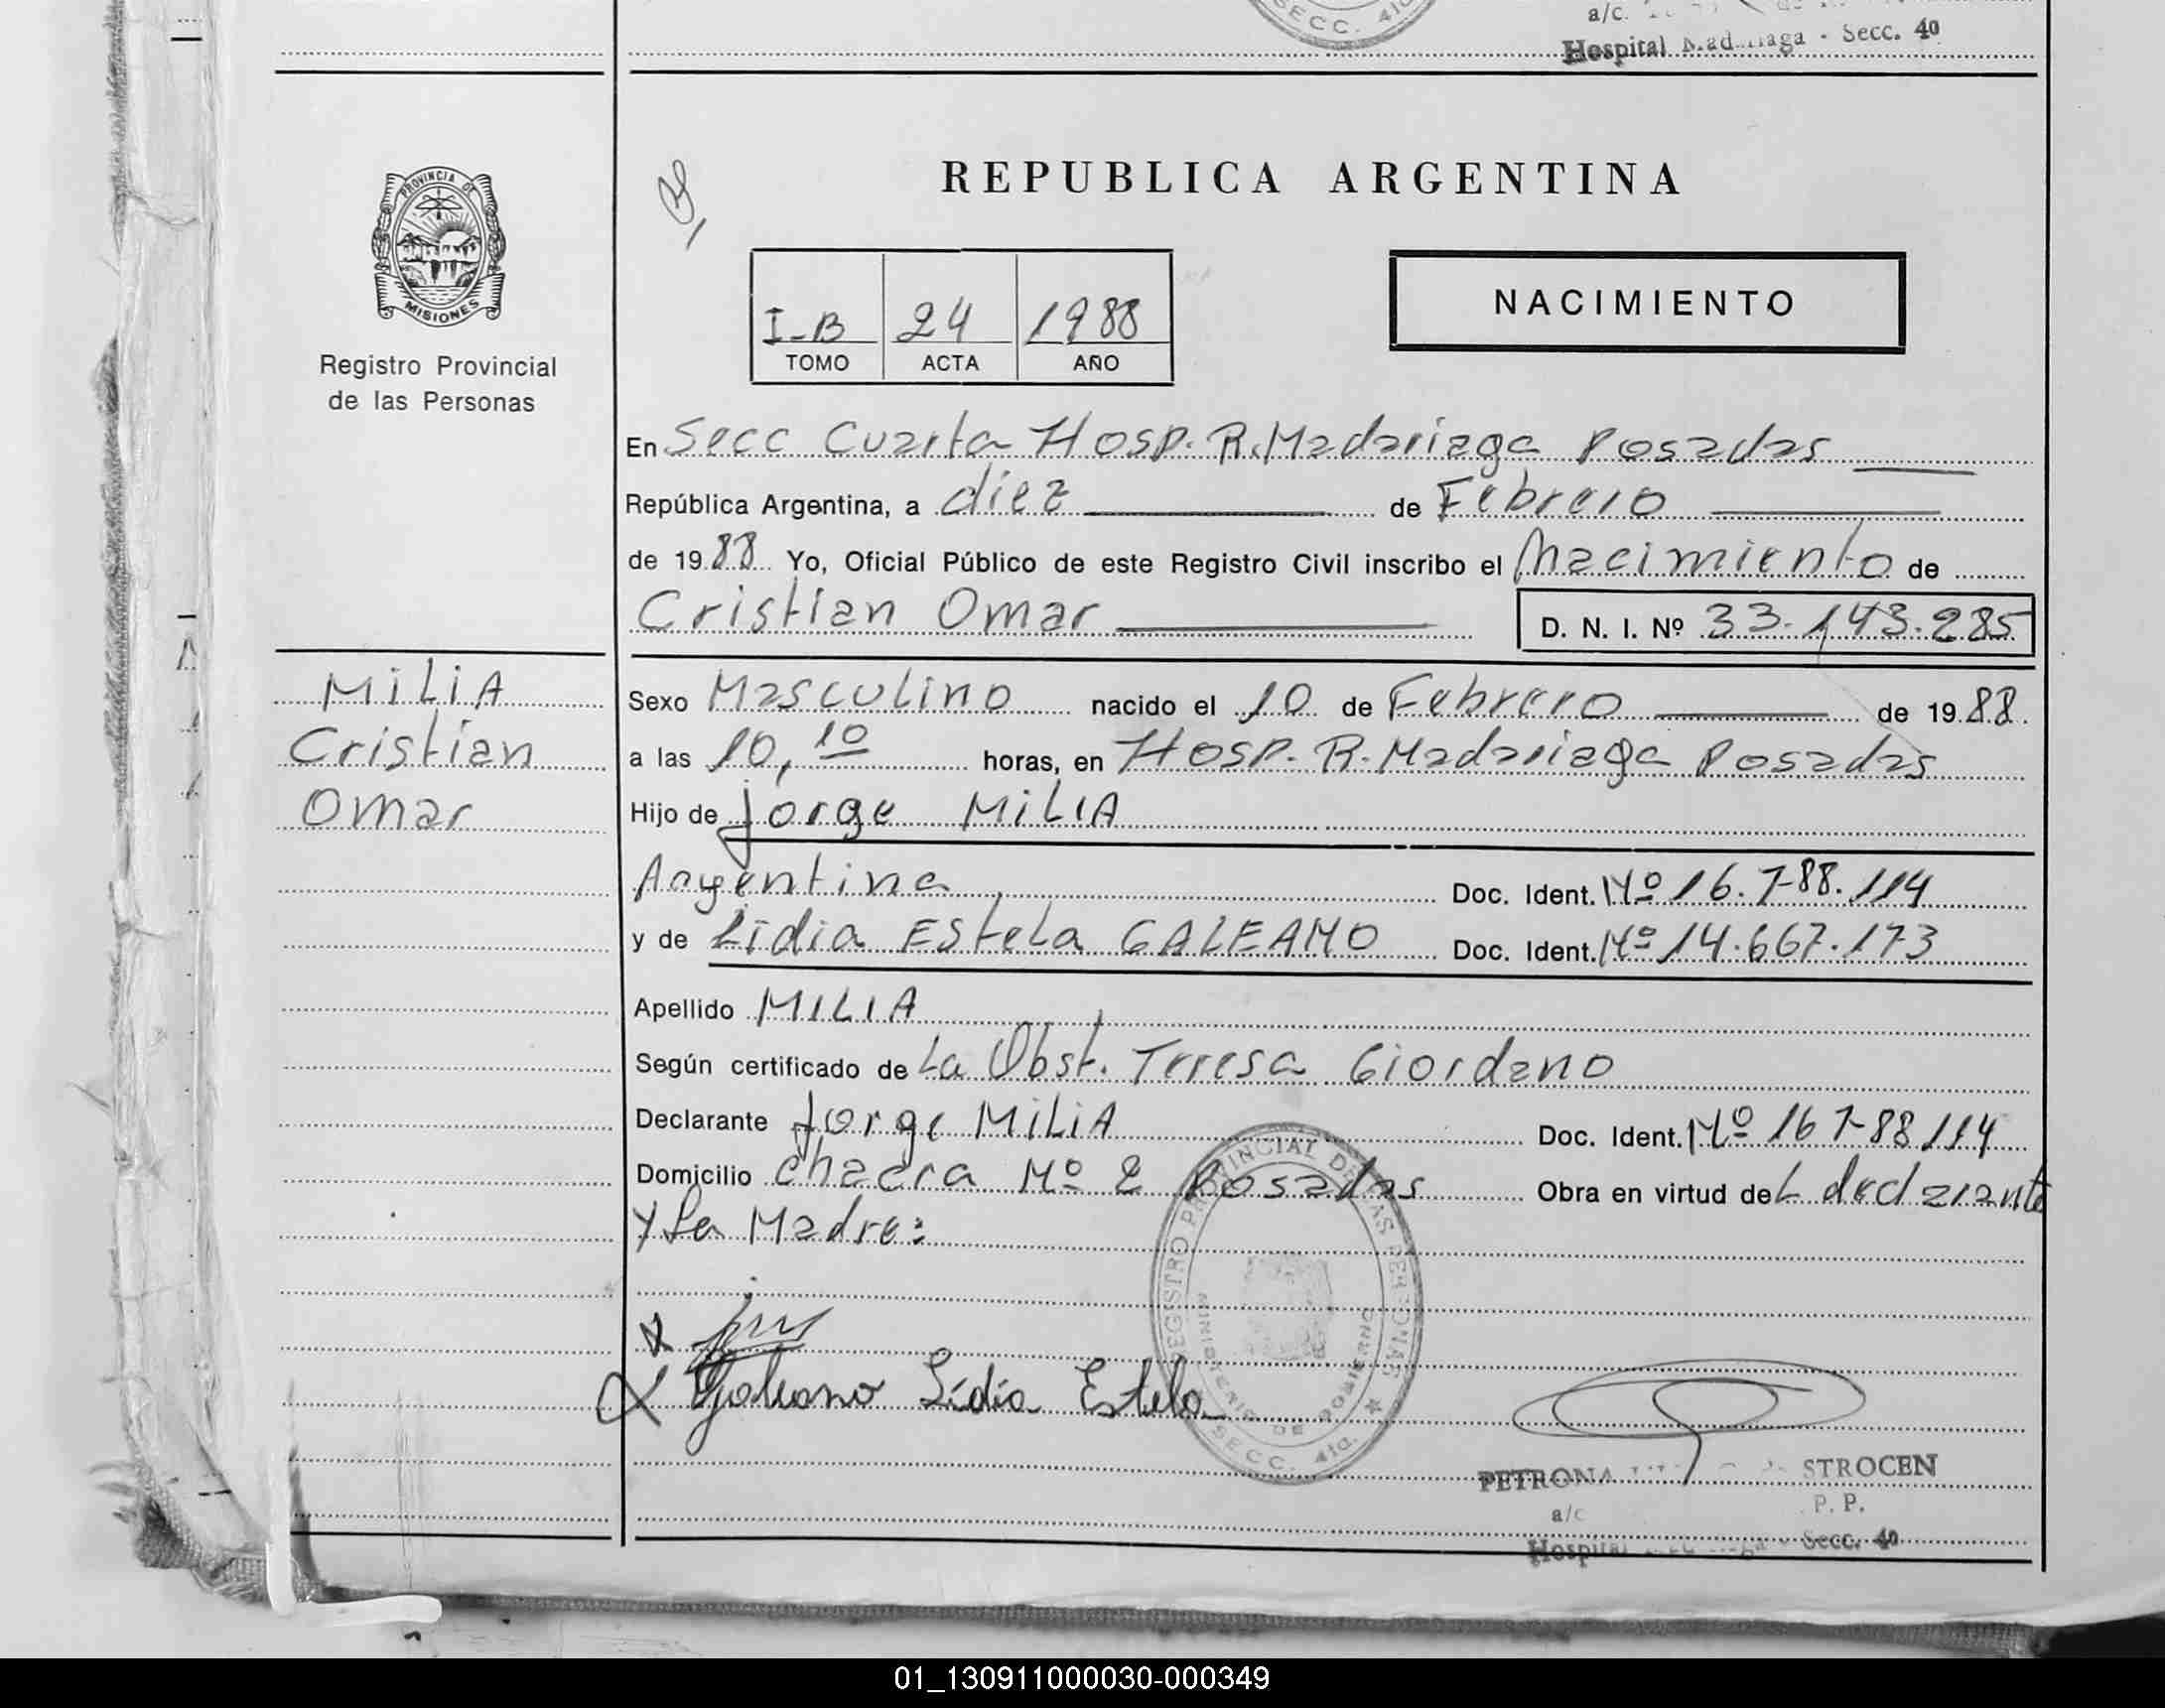 SECC. 4ta
a/c.
Hospital Madariaga - Secc. 4a
PROVINCIA DE
MISIONES
Registro Provincial
de las Personas
REPUBLICA ARGENTINA
I-B 24 1988
TOMO ACTA AÑO
NACIMIENTO
En Secc Cuarta Hosp. R. Madariaga Posadas
República Argentina, a diez de Febrero
de 1988 Yo, Oficial Público de este Registro Civil inscribo el Nacimiento de
Cristian Omar D. N. I. Nº 33.143.285
MILIA
Cristian
Omar
Sexo Masculino nacido el 10 de Febrero de 1988.
a las 10,10 horas, en Hosp. R. Madariaga Posadas
Hijo de Jorge MILIA
Argentina Doc. Ident. Nº 16.788.114
y de Lidia Estela GALEANO Doc. Ident. Nº 14.667.173
Apellido MILIA
Según certificado de La Obst. Teresa Giordano
Declarante Jorge MILIA Doc. Ident. Nº 16 788 114
Domicilio Chacra Nº 2 Posadas Obra en virtud del declarante
y La Madre:
REGISTRO PROVINCIAL DE LAS PERSONAS
MINISTERIO DE GOBIERNO
SECC. 4ta.
Galeano Lidia Estela
PETRONA STROCEN
a/c P. P.
Hospital Secc. 4a
01_130911000030-000349